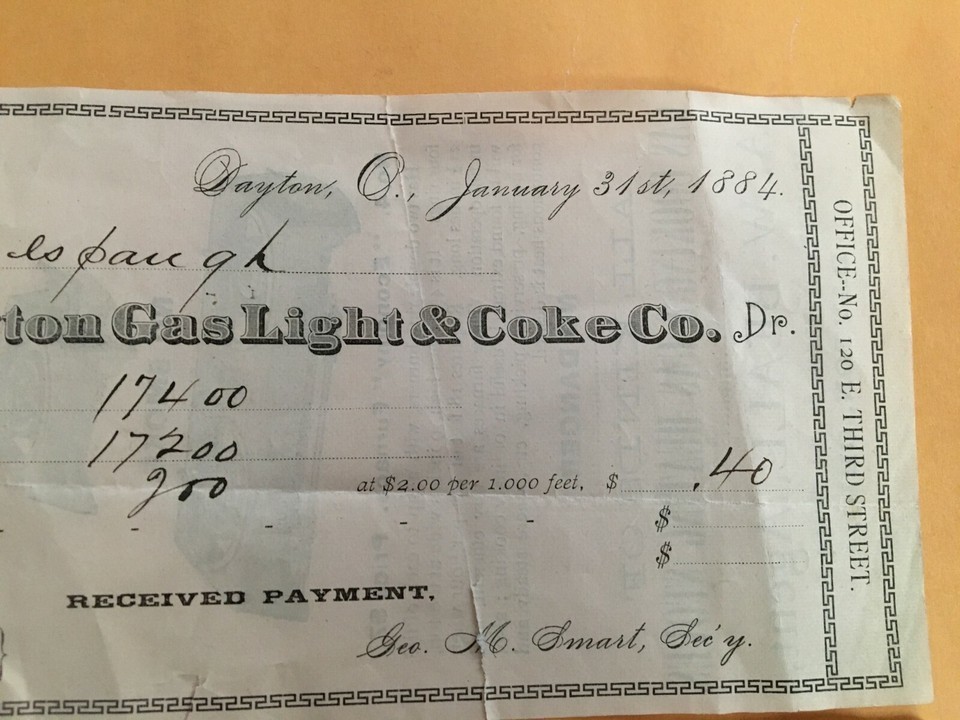 Dayton, O., January 31st, 1884.
espaugh
ton Gas Light & Coke Co. Dr.
17400
17200
200 at $2.00 per 1.000 feet, $ .40
$
$
RECEIVED PAYMENT,
Geo. M. Smart, Sec'y.
OFFICE--No. 120 E. THIRD STREET.